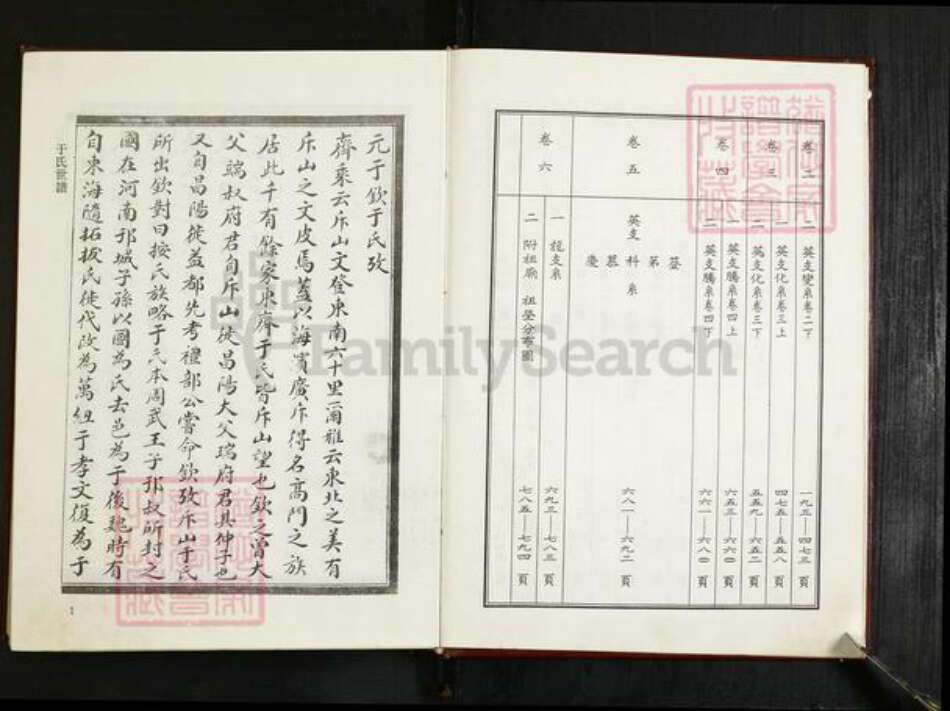 卷二
一 英支變系卷二下 一九三——四七三頁
卷三
一 英支化系卷三上 四七五——五五八頁
二 英支化系卷三下 五五九——六五二頁
卷四
一 英支騰系卷四上 六五三——六六〇頁
二 英支騰系卷四下 六六一——六八〇頁
卷五
英支科系 六八一——六九二頁
登第慕慶
卷六
一 龍支系 六九三——七八三頁
二 附祖廟 祖塋分布圖 七八五——七九四頁
元于欽于氏攷
齊乘云斥山文登東南六十里爾雅云東北之美有
斥山之文皮焉蓋以海濱廣斥得名高門之族
居此千有餘家東齊于氏皆斥山望也欽之曾大
父端叔府君自斥山徙昌陽大父瑞府君其仲子也
又自昌陽徙益都先考禮部公嘗命欽攷斥山于氏
所出欽對曰按氏族略于氏本周武王子邘叔所封之
國在河南邘城子孫以國為氏去邑為于後魏時有
自東海隨拓拔氏徙代改為萬紐于孝文復為于
于氏世譜
1
FamilySearch